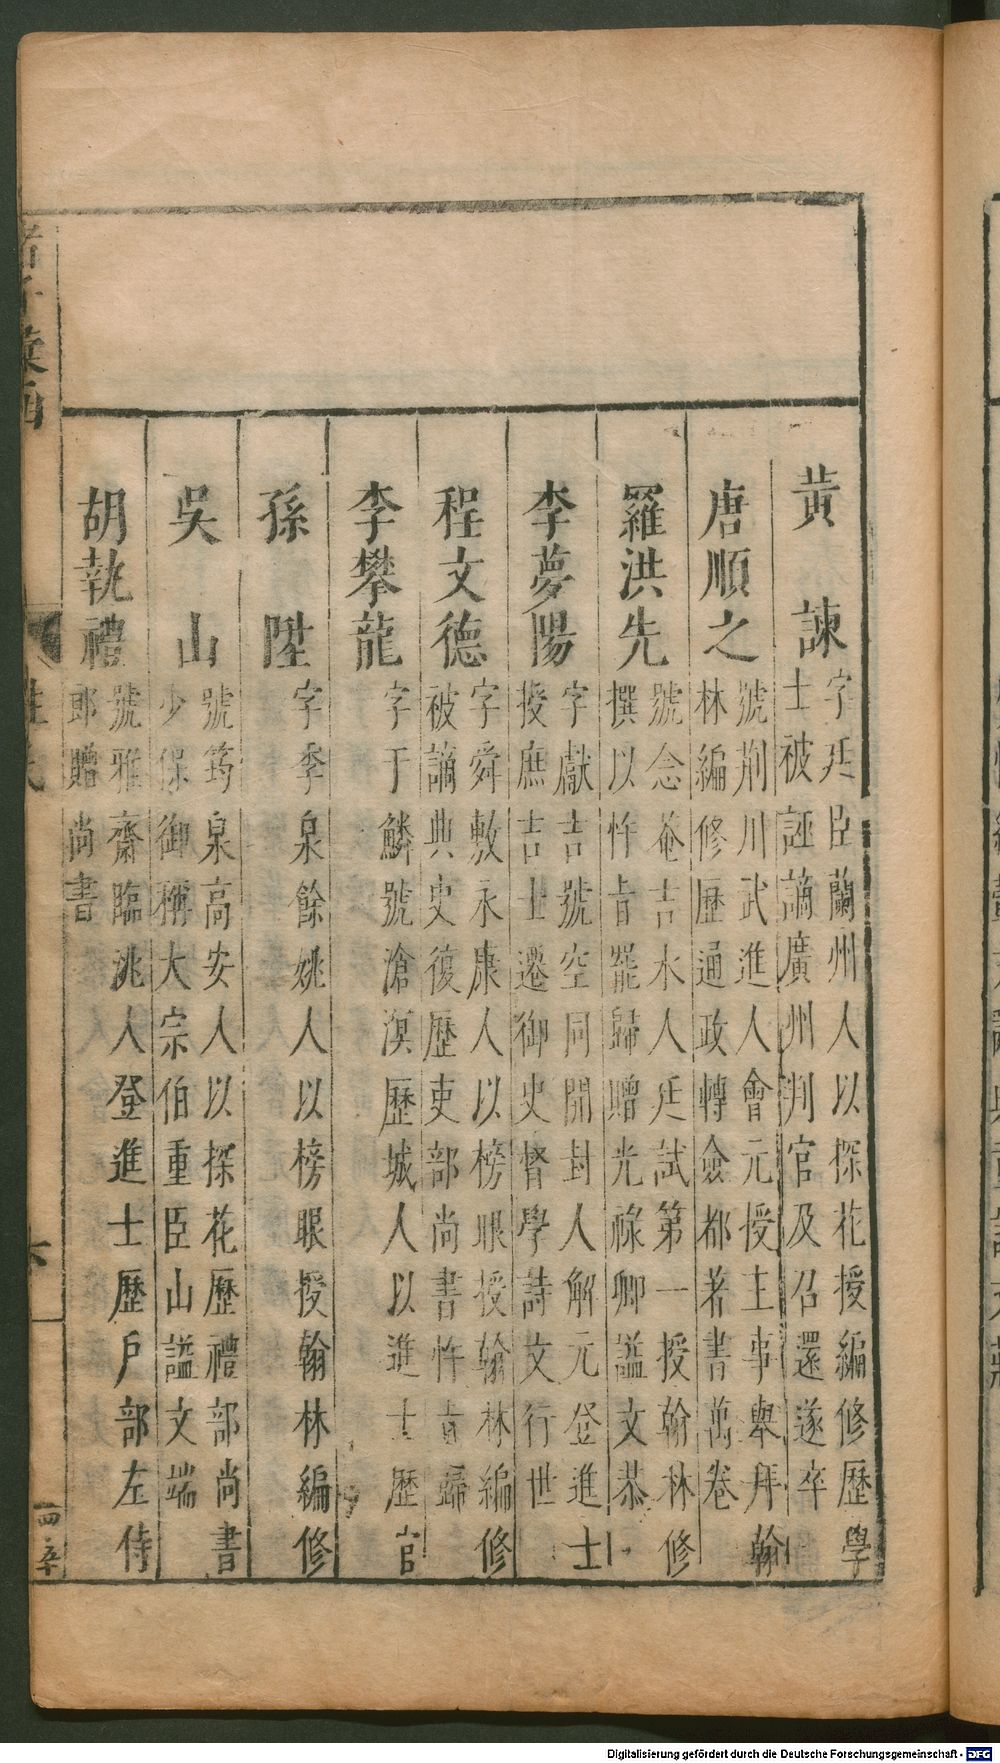 黃諫
字廷臣蘭州人以探花授編修歷學
士被誣謫廣州判官及召還遂卒
唐順之
號荆川武進人會元授主事舉拜翰
林編修歷通政轉僉都著書萬卷
羅洪先
號念菴吉水人廷試第一授翰林修
撰以忤旨罷歸贈光祿卿謚文恭
李夢陽
字獻吉號空同開封人解元登進士
授庶吉士遷御史督學詩文行世
程文德
字舜敷永康人以榜眼授翰林編修
被謫典史復歷吏部尚書忤旨歸
李攀龍
字于鱗號滄溟歷城人以進士歷官
孫陞
字季泉餘姚人以榜眼授翰林編修
吳山
號筠泉高安人以探花歷禮部尚書
少保御稱大宗伯重臣山謚文端
胡執禮
號雅齋臨洮人登進士歷戶部左侍
郎贈尚書
六
Digitalisierung gefördert durch die Deutsche Forschungsgemeinschaft - DFG